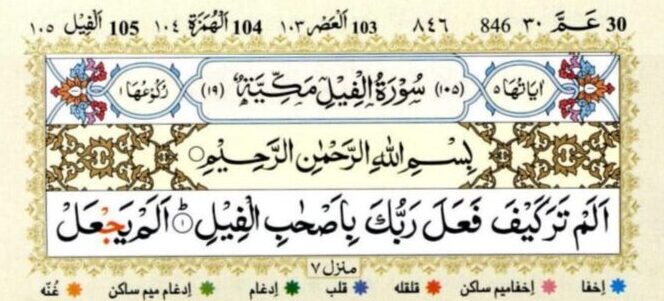 30 عَمَّ ٣٠ 846 ٨٤٦ 103 اَلْعَصْر ١٠٣ 104 اَلْهُمَزَة ١٠٤ 105 اَلْفِيْل ١٠٥
اٰيَاتُهَا ٥ (١٠٥) سُوْرَةُ الْفِيْلِ مَكِّيَّةٌ (١٩) رُكُوْعُهَا ١
بِسْمِ اللّٰهِ الرَّحْمٰنِ الرَّحِيْمِ
اَلَمْ تَرَ كَيْفَ فَعَلَ رَبُّكَ بِاَصْحٰبِ الْفِيْلِ ؕ﴿١﴾ اَلَمْ يَجْعَلْ
منزل ٧
إخفا إخفا ميم ساكن قلقله قلب ادغام ادغام ميم ساكن غُنّه